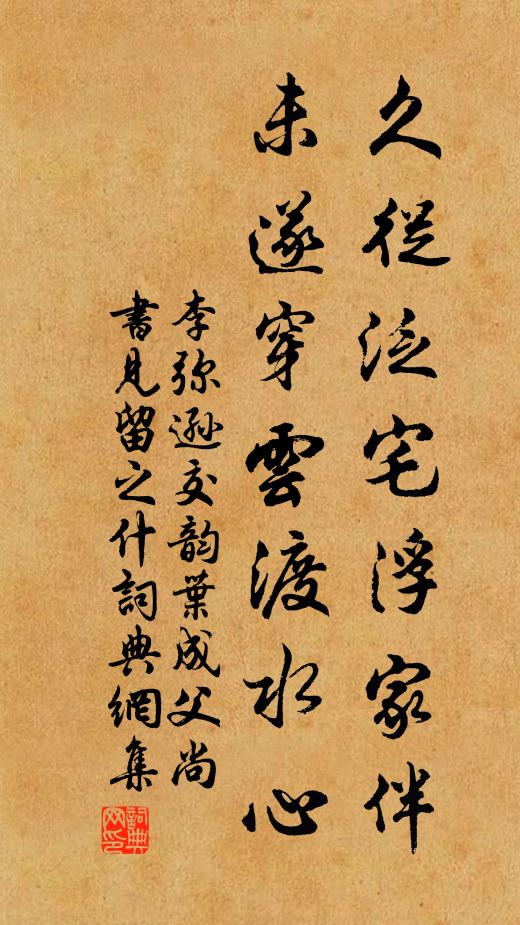 久從泛宅浮家伴
未遂穿雲渡水心
李弥遜交韵葉成父尚
書見留之什詞典網集
詞典网印